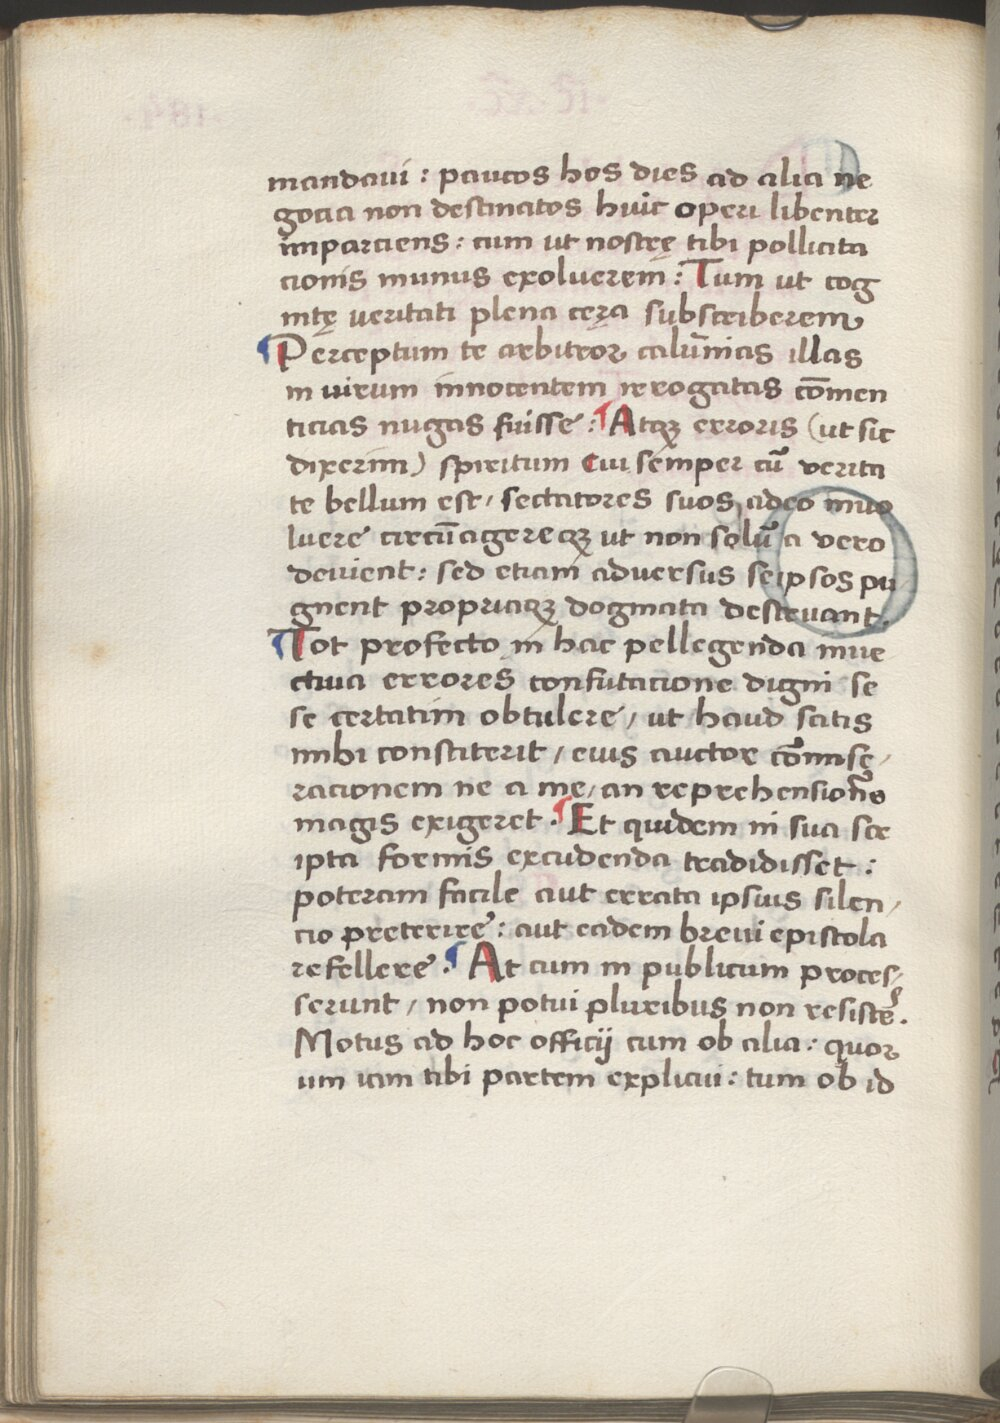 mandaui : paucos hos dies ad alia ne
gocia non destinatos huic operi libenter
imparciens : cum ut nostrę tibi pollicita
cionis munus exoluerem : Tum ut cog
nitę veritati plena cera subscriberem
¶ Perceptum te arbitror calūnias illas
in uirum innocentem irrogatas cōmen
ticias nugas fuisse : ¶ Atqꝫ erroris (ut sic
dixerim) spiritum cui semper cū verita
te bellum est / sectatores suos adeo inuo
luere circūagereqꝫ ut non solū a vero
deuient : sed etiam adversus seipsos pu
gnent propriaqꝫ dogmata destruant .
¶ Tot profecto in hac pellegenda inue
ctiua errores confutacione digni se
se certatim obtulere / ut haud satis
mihi constiterit / eius auctor cōmise /
racionem ne a me / an reprehensionē
magis exigeret . ¶ Et quidem ni sua scr
ipta formis excudenda tradidisset :
poteram facile aut errata ipsius silen /
cio preterire : aut eadem breui epistola
refellere . ¶ At cum in publicum proces /
serunt / non potui pluribus non resistē .
Motus ad hoc officij cum ob alia : quor
um iam tibi partem explicui : tum ob id